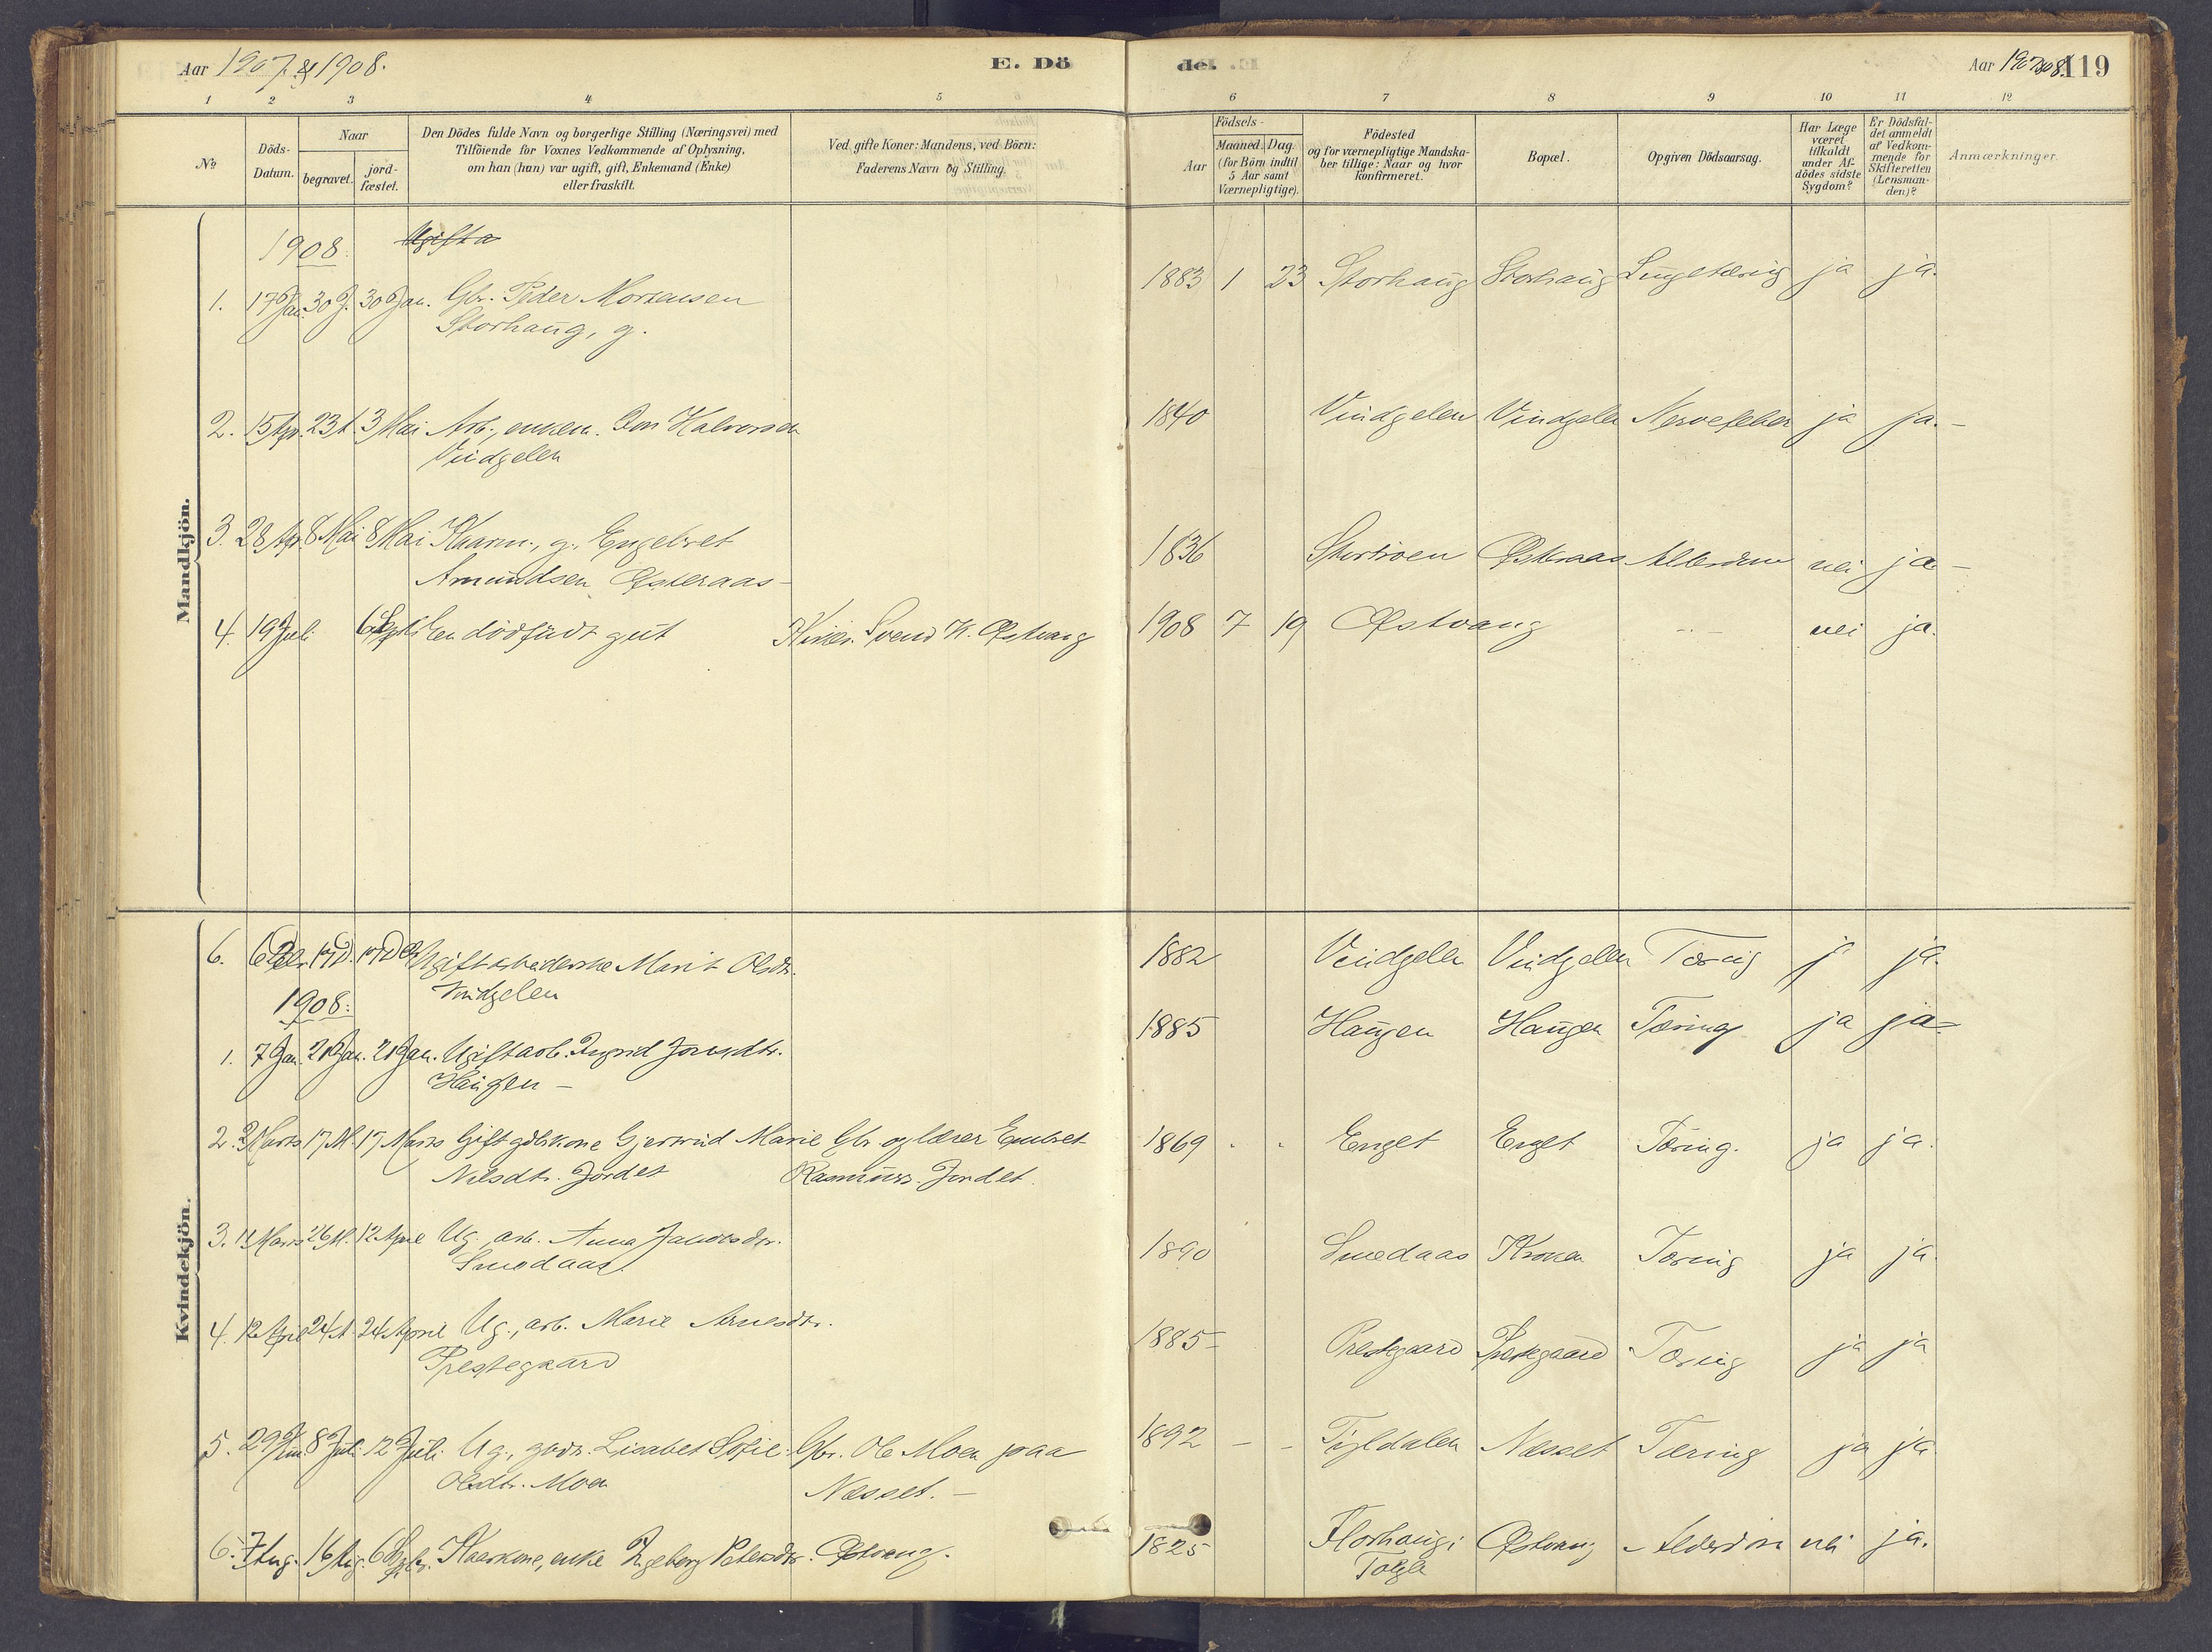 Aar 1907 & 1908.
E. Dö
del.
Aar 1907 & 08.
119
1 2 3 4 5 6 7 8 9 10 11 12
No
Döds-
Datum.
Naar
begravet.
jord-
fæstet.
Den Dödes fulde Navn og borgerlige Stilling (Næringsvei) med
Tilföiende for Voxnes Vedkommende af Oplysning,
om han (hun) var ugift, gift, Enkemand (Enke)
eller fraskilt.
Ved gifte Koner: Mandens, ved Börn:
Faderens Navn og Stilling.
Födsels-
Aar
Maaned. Dag.
(for Börn indtil
5 Aar samt
Værnepligtige).
Födested
og for værnepligtige Mandska-
ber tillige: Naar og hvor
konfirmeret.
Bopæl.
Opgiven Dödsaarsag.
Har Læge
været
tilkaldt
under Af-
dödes sidste
Sygdom?
Er Dödsfal-
det anmeldt
af Vedkom-
mende for
Skifteretten
(Lensman-
den)?
Anmærkninger.
Mandkjön.
1908. Ugifta
1. 17 Jan. 30 J. 30 Jan. Gbr. Peder Mortensen 1883 1 23 Storhaug Storhaug Lungetæring ja ja.
Storhaug, g.
2. 15 Apr. 23 A. 3 Mai Arb., enkem. Jon Halvorsen 1840 Vindgelen Vindgelen Nervefeber ja ja.-
Vindgelen
3. 28 Apr. 8 Mai 8 Mai Kaarm., g., Engebret 1836 Østeraas Alderdom nei ja -
Amundsen Østeraas-
4. 19 Juli 6 Sept. En dödfödt gut Svend K. Østvang 1908 7 19 Østvang - - nei ja.
Kvindekjön.
6. Ugift arbeiderske Marit Olsdtr. 1882 Vindgelen Vindgelen Tæring ja ja.
Vindgelen
1908:
1. 7 Jan. 21 Jan. 21 Jan. Ugift arb. Ingrid Jonsdtr. 1885 Haugen Haugen Tæring ja ja-
Haugen -
2. 2 Marts 17 M. 17 Marts Gift gdbkone Gjertrud Marie Gbr. og lærer Embret 1869 - - Enget Enget Tæring. ja ja.
Nilsdtr. Jordet Rasmuss. Jordet.
3. 11 Marts 26 M. 12 April Ug. arb. Anna Jakobsdtr. 1890 Smedaas Kroken Tæring ja ja.
Smedaas
4. 12 April 24 A. 24 April Ug., arb. Marie Arnesdtr. 1885- Prestegaard Prestegaard Tæring ja ja
Prestegaard
5. 29 Jun. 8 Juli 12 Juli Ug., gbdr. Lisabet Sofie Gbr. Ole Moen paa 1892 - - Tyldalen Næsset Tæring ja ja
Olsdtr. Moen Næsset. -
6. 7 Aug. 16 Aug. 6 Sept. Kaarkone, enke Ingeborg Petersdtr. Østvang. 1825 Østvang - Alderdom nei ja.
Tolga